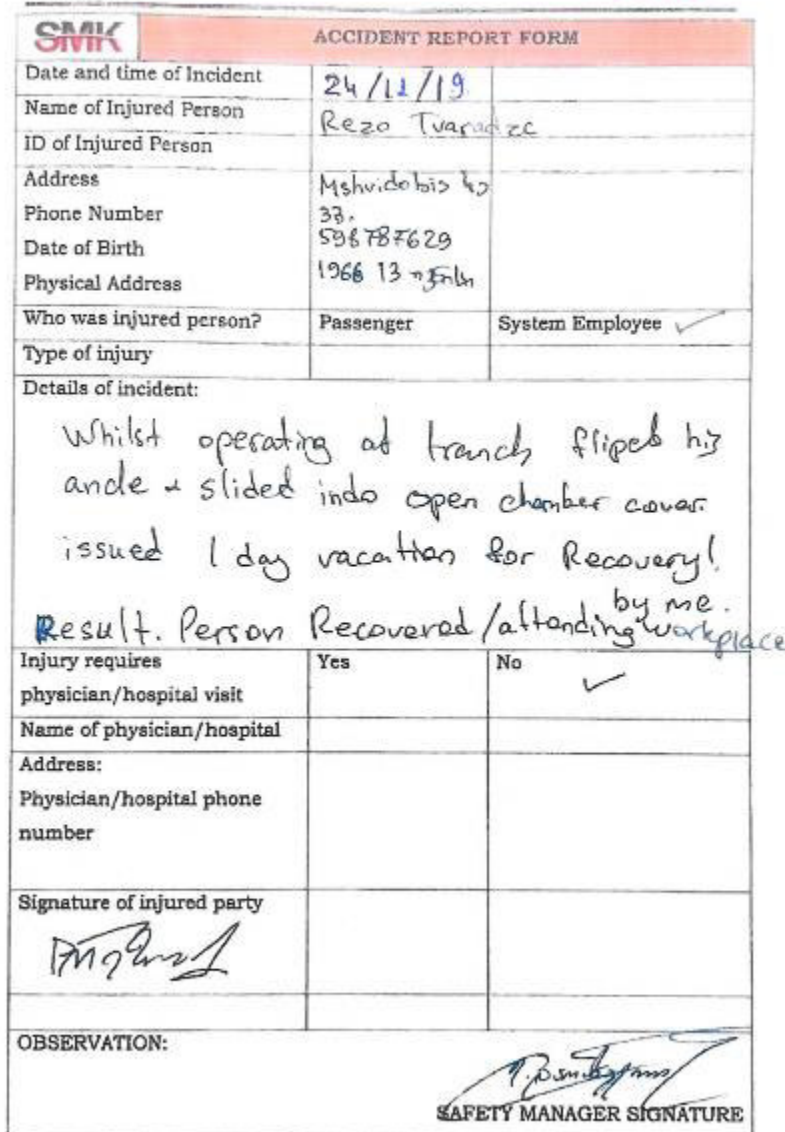 SMK ACCIDENT REPORT FORM
Date and time of Incident 24/11/19
Name of Injured Person Rezo Tvaradze
ID of Injured Person
Address Mshvidobis
Phone Number 33.
Date of Birth 598787629
Physical Address 1966 13
Who was injured person? Passenger System Employee ✓
Type of injury
Details of incident:
Whilst operating at tranch fliped his
ancle & slided indo open chamber cover.
issued 1 day vacation for Recovery!
by me.
Result. Person Recovered/attending workplace
Injury requires Yes No
physician/hospital visit ✓
Name of physician/hospital
Address:
Physician/hospital phone
number
Signature of injured party
OBSERVATION:
SAFETY MANAGER SIGNATURE